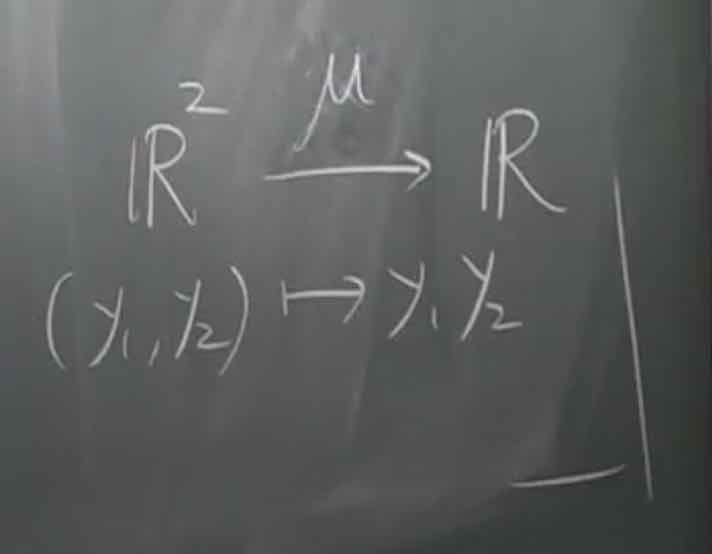 ℝ² —μ→ ℝ
(y₁, y₂) ↦ y₁ y₂